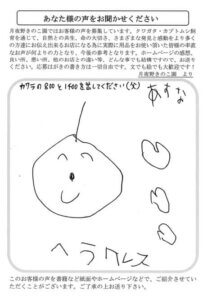 あなた様の声をお聞かせください
月夜野きのこ園ではお客様の声を募集しています。クワガタ・カブトムシ飼
育を通じて、自然との共生、命の大切さ、さまざまな発見と感動をより多く
の方達にお伝え出来るお店になる為に実際に用品をお使い頂いた皆様の率直
なお声が何よりの力となり、今後の参考となります。ホームページの感想、
良い所、悪い所、他のお店との違い等、どんな事でも結構ですので、お送り
ください。応募はがきの書き方は一切自由です。文でも絵でも大歓迎です！
月夜野きのこ園 より
あすな
ヘラクレス
このお客様の声を書籍など紙面やホームページなどで、ご紹介させてい
ただくことがございます。ご了承の上お送り下さい。